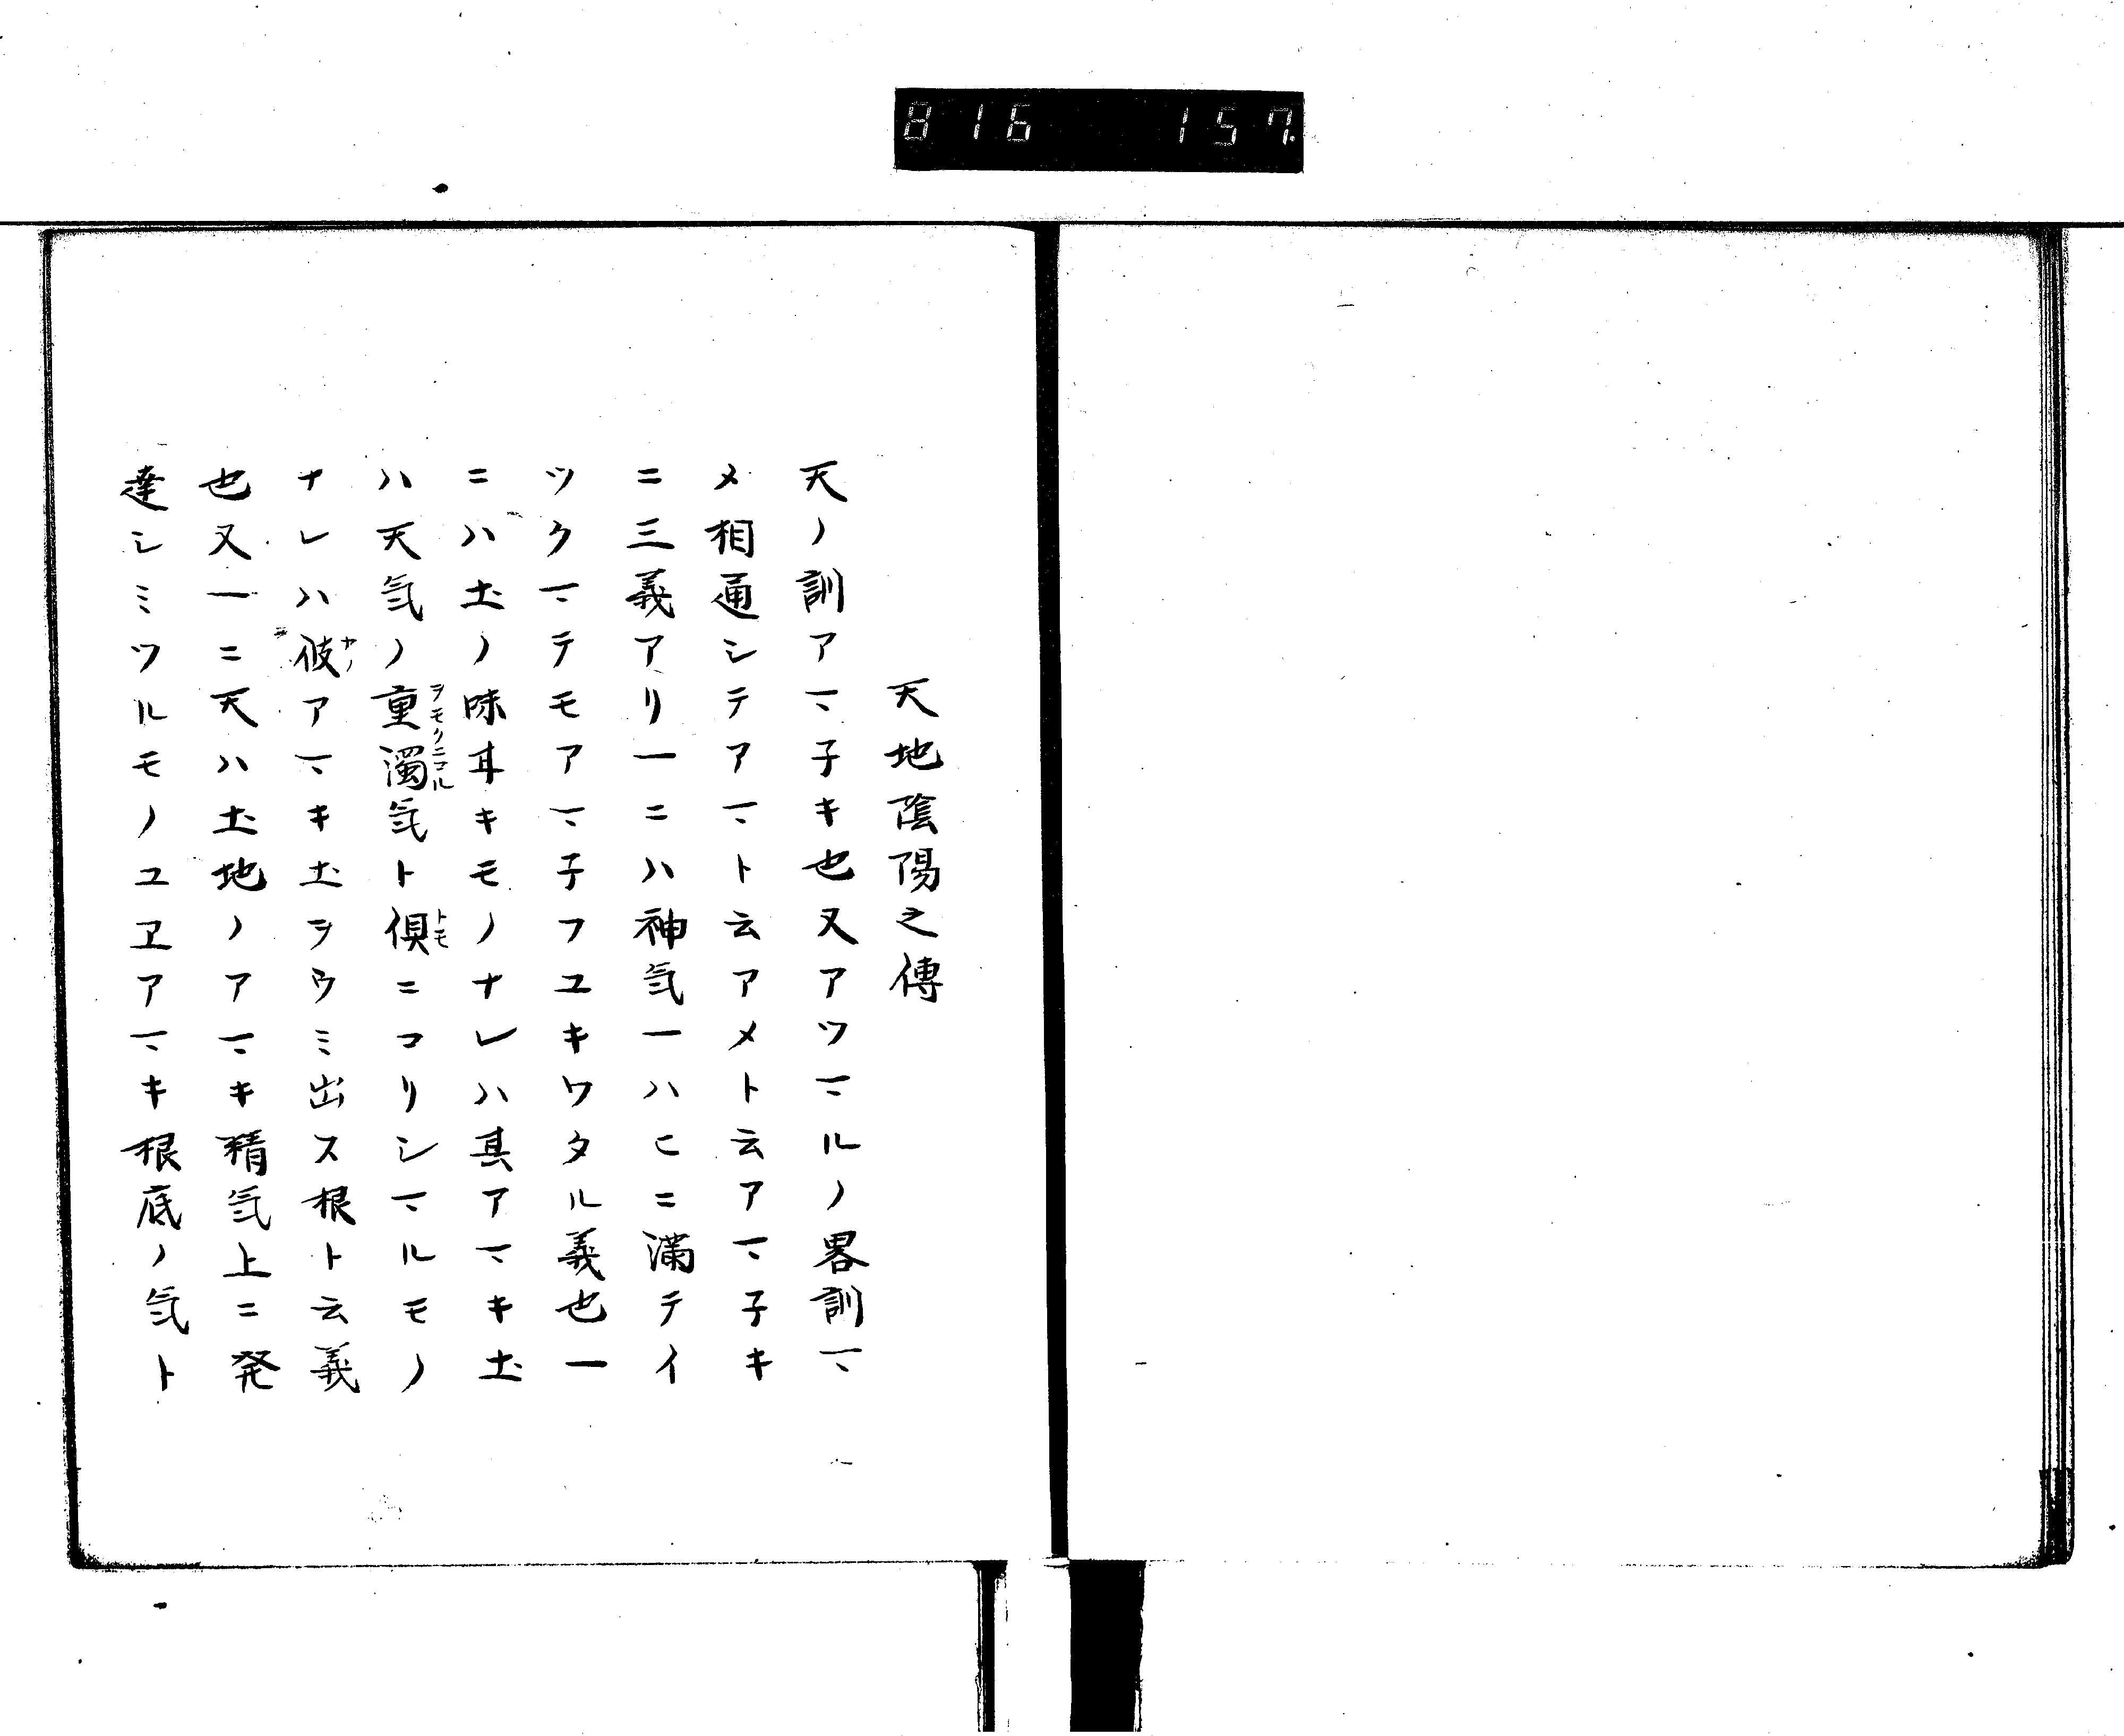 816 157.
天地陰陽之傳
天ノ訓アマ子キ也又アツマルノ畧訓マ
メ相通シテアマト云アメト云アマ子キ
ニ三義アリ一ニハ神気一ハヒニ満テイ
ツクマテモアマ子フユキワタル義也一
ニハ土ノ味耳キモノナレハ其アマキ土
ハ天気ノ重濁気ト倶ニコリシマルモノ
ヲモクニコル
トモ
ナレハ彼アマキ土ヲウミ出ス根ト云義
カノ
也又一ニ天ハ土地ノアマキ精気上ニ発
達シミツルモノユヱアマキ根底ノ気ト